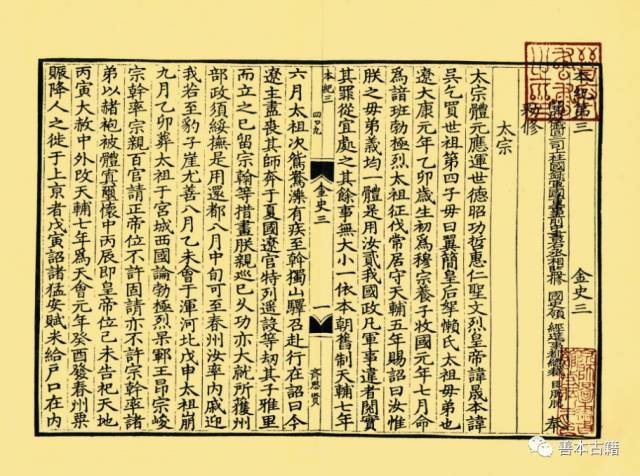 本紀第三 金史三
開府儀同三司上柱國錄軍國重事前中書右丞相監修 國史領 經筵事都總裁 臣脫脫 奉
勑修
太宗
太宗體元應運世德昭功哲惠仁聖文烈皇帝諱晟本諱
吳乞買世祖第四子母曰翼簡皇后拏懶氏太祖母弟也
遼大康元年乙卯歲生初爲穆宗養子收國元年七月命
爲諳班勃極烈太祖征伐常居守天輔五年賜詔曰汝惟
朕之母弟義均一體是用汝貳我國政凡軍事違者閱實
其罪從宜處之其餘事無大小一依本朝舊制天輔七年
本紀三
金史三
一
齊思賢
六月太祖次鴛鴦濼有疾至斡獨山驛召赴行在詔曰今
遼主盡喪其師奔于夏國遼官特列遥設等刼其子雅里
而立之已留宗翰等措畫朕親巡已久功亦大就所獲州
部政須綏撫是用還都八月中旬可至春州汝率內戚迎
我若至豹子崖尤善八月乙未會于渾河北戊申太祖崩
九月乙卯葬太祖于宮城西國論勃極烈杲鄆王昂宗峻
宗幹率宗親百官請正帝位不許固請亦不許宗幹率諸
弟以赭袍被體寘璽懷中丙辰即皇帝位己未告祀天地
丙寅大赦中外改天輔七年爲天會元年癸酉發春州粟
賑降人之徙于上京者戊寅詔諸猛安賦米給戶口在內
善本古籍